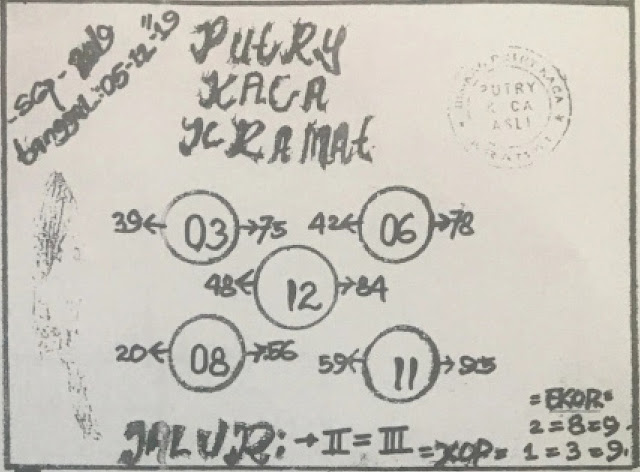 tanggal: 05-12-19
PUtRY
KACA
KRAMAt
PUTRY KACA
PUTRY
CA
ASLI
39← 03 →75 42← 06 →78
48← 12 →84
20← 08 →56 59← 11 →95
=EKOR=
2=8=9
JALUR: →II=III =KOP= 1=3=9